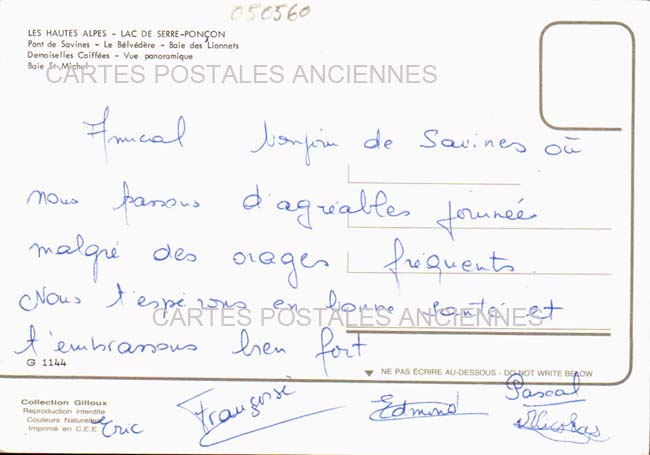 050560
LES HAUTES ALPES - LAC DE SERRE-PONÇON
Pont de Savines - Le Bélvédère - Baie des Lionnets
Demoiselles Coiffées - Vue panoramique
Baie St Michel
CARTES POSTALES ANCIENNES
Amical bonjour de Savines où
nous passons d'agréables journées
malgré des orages fréquents.
Nous t'espérons en bonne santé et
CARTES POSTALES ANCIENNES
t'embrassons bien fort
G 1144
NE PAS ÉCRIRE AU-DESSOUS - DO NOT WRITE BELOW
Collection Gilloux
Reproduction interdite
Couleurs Naturelles
Imprimé en C.E.E.
Eric Françoise Edmond Pascal
Nicolas